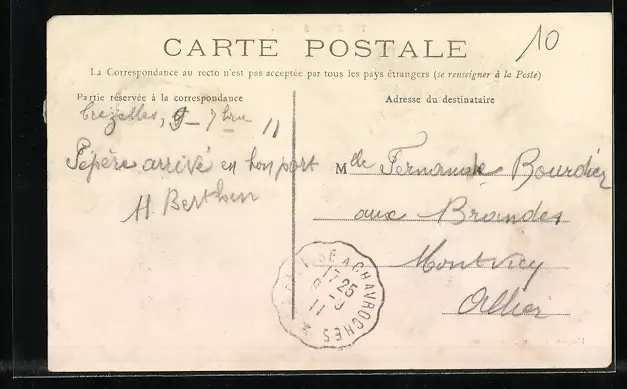 10
CARTE POSTALE
La Correspondance au recto n'est pas acceptée par tous les pays étrangers (se renseigner à la Poste)
Partie réservée à la correspondance
Adresse du destinataire
11
Pépère arrivé en bon port
H. Berthon
Mlle Fernande Bourdier
aux Brandes
Montvicq
Allier
A CHAVROCHES
17 25
9
11